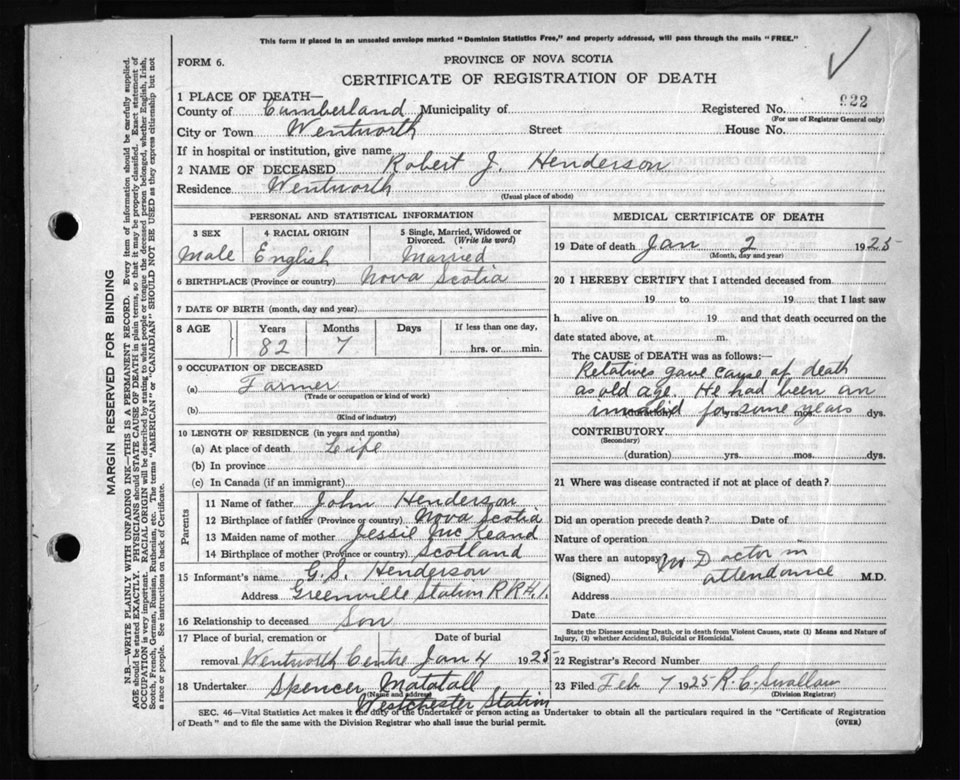 This form if placed in an unsealed envelope marked "Dominion Statistics Free," and properly addressed, will pass through the mails "FREE."
FORM 6.
PROVINCE OF NOVA SCOTIA
CERTIFICATE OF REGISTRATION OF DEATH
1 PLACE OF DEATH—
County of Cumberland Municipality of Registered No. 922
(For use of Registrar General only)
City or Town Wentworth Street House No.
If in hospital or institution, give name
2 NAME OF DECEASED Robert J. Henderson
Residence Wentworth
(Usual place of abode)
PERSONAL AND STATISTICAL INFORMATION
3 SEX 4 RACIAL ORIGIN 5 Single, Married, Widowed or Divorced. (Write the word)
Male English Married
6 BIRTHPLACE (Province or country) Nova Scotia
7 DATE OF BIRTH (month, day and year)
8 AGE Years Months Days If less than one day,
82 7 hrs. or min.
9 OCCUPATION OF DECEASED
(a) Farmer
(Trade or occupation or kind of work)
(b)
(Kind of industry)
10 LENGTH OF RESIDENCE (in years and months)
(a) At place of death Life
(b) In province
(c) In Canada (if an immigrant)
Parents
11 Name of father John Henderson
12 Birthplace of father (Province or country) Nova Scotia
13 Maiden name of mother Jessie McKeand
14 Birthplace of mother (Province or country) Scotland
15 Informant's name G. S. Henderson
Address Greenville Station R R # 1.
16 Relationship to deceased Son
17 Place of burial, cremation or Date of burial
removal Wentworth Centre Jan 4 1925
18 Undertaker Spencer Matatall
(Name and address)
Westchester Station
MEDICAL CERTIFICATE OF DEATH
19 Date of death Jan 2 1925
(Month, day and year)
20 I HEREBY CERTIFY that I attended deceased from
19 to 19 that I last saw
h alive on 19 and that death occurred on the
date stated above, at m.
The CAUSE of DEATH was as follows:—
Relatives gave cause of death
as old age. He had been an
invalid for some years
yrs. mos. dys.
CONTRIBUTORY
(Secondary)
(duration) yrs. mos. dys.
21 Where was disease contracted if not at place of death?
Did an operation precede death? Date of
Nature of operation
Was there an autopsy No Doctor in
(Signed) attendance M.D.
Address
Date
State the Disease causing Death, or in death from Violent Causes, state (1) Means and Nature of
Injury, (2) whether Accidental, Suicidal or Homicidal.
22 Registrar's Record Number
23 Filed Feb 7 1925 R. C. Swallow
(Division Registrar)
SEC. 46—Vital Statistics Act makes it the duty of the Undertaker or person acting as Undertaker to obtain all the particulars required in the "Certificate of Registration
of Death" and to file the same with the Division Registrar who shall issue the burial permit.
(OVER)
MARGIN RESERVED FOR BINDING
N.B.—WRITE PLAINLY WITH UNFADING INK—THIS IS A PERMANENT RECORD. Every item of information should be carefully supplied.
AGE should be stated EXACTLY. PHYSICIANS should STATE CAUSE OF DEATH in plain terms, so that it may be properly classified. Exact statement of
OCCUPATION is very important. RACIAL ORIGIN will be described by stating to what people or tongue the deceased person belonged, whether English, Irish,
Scotch, French, German, Russian, Ruthenian, etc. The terms "AMERICAN" or "CANADIAN" SHOULD NOT BE USED as they express citizenship but not
a race or people. See instructions on back of Certificate.